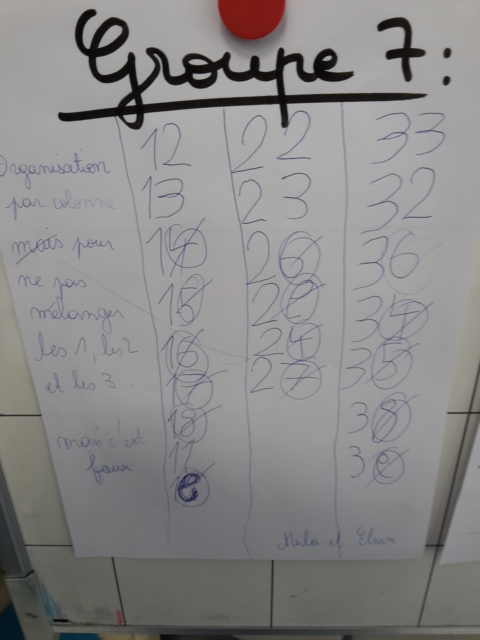 Groupe 7:
Organisation
par colonne
mais pour
ne pas
mélanger
les 1, les 2
et les 3.
mais c'est
faux
12 22 33
13 23 32
14 26 36
15 22 34
16 24 35
27
18 38
17 3e
e
et